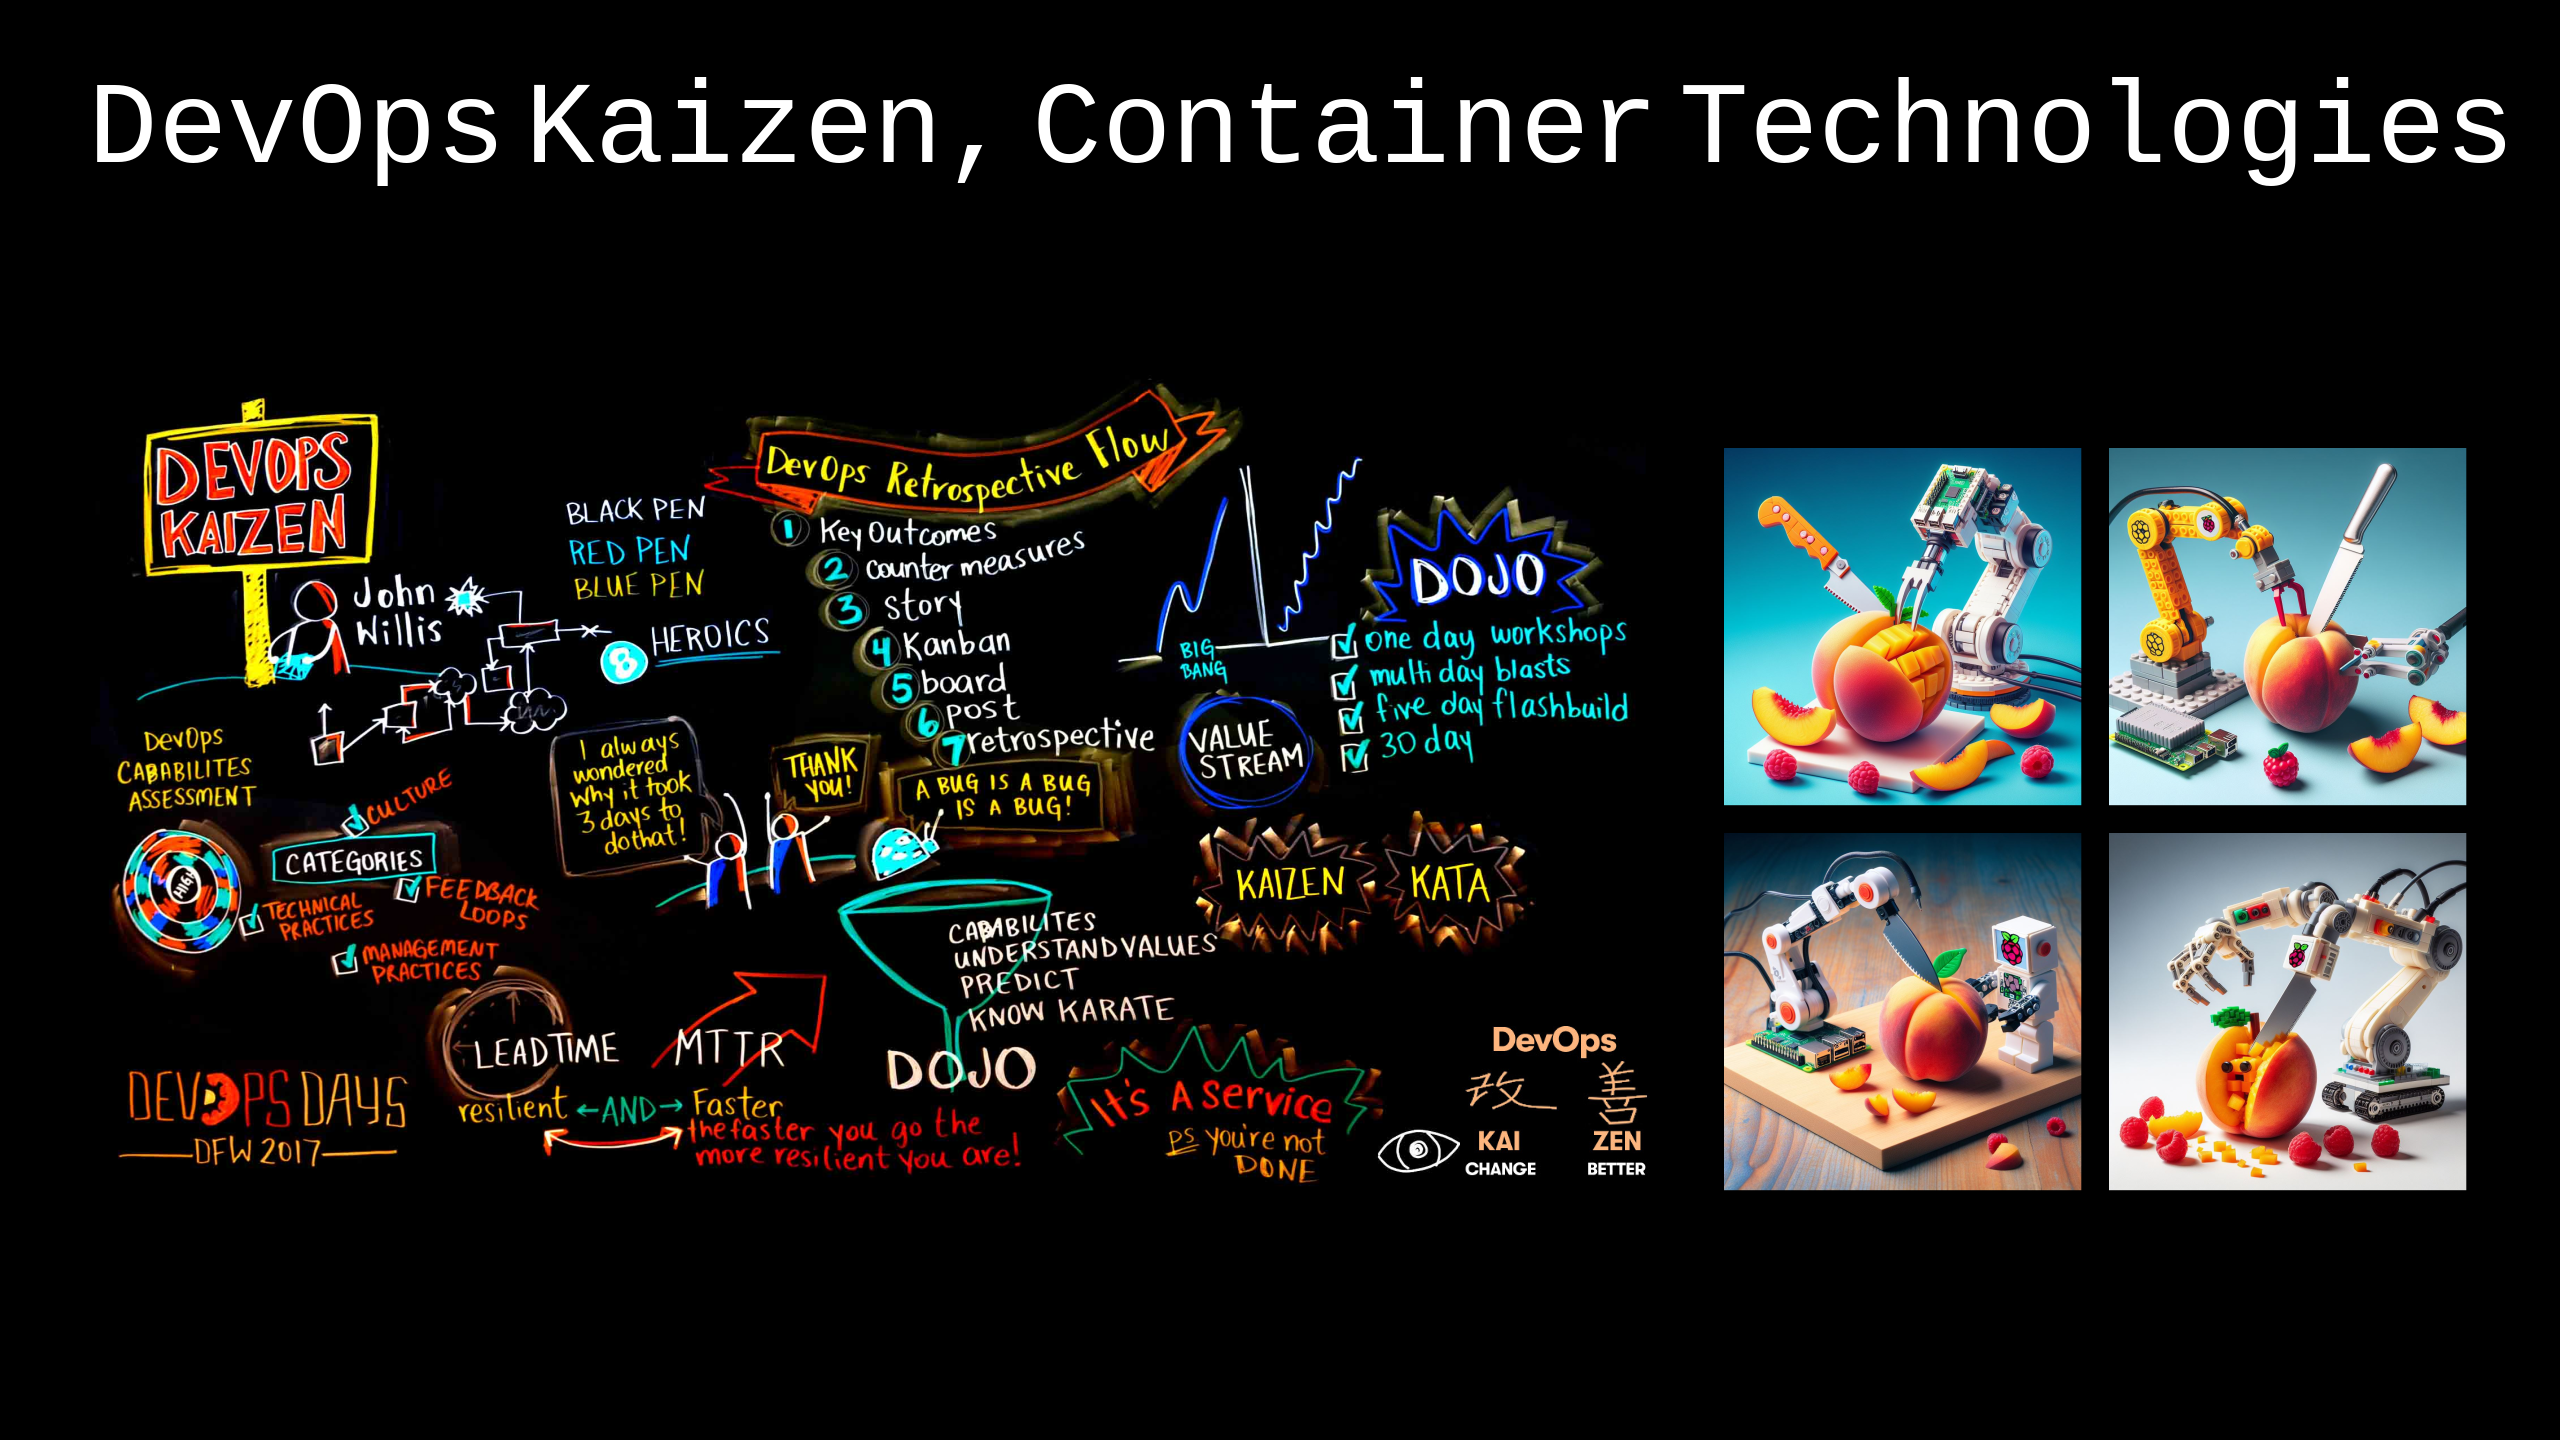 DevOps Kaizen, Container Technologies
DEVOPS
KAIZEN
John
Willis
BLACK PEN
RED PEN
BLUE PEN
8 HEROICS
DevOps Retrospective Flow
1 Key Outcomes
2 counter measures
3 story
4 Kanban
5 board
6 post
7 retrospective
BIG
BANG
DOJO
one day workshops
multi day blasts
five day flashbuild
30 day
VALUE
STREAM
DevOps
CABABILITES
ASSESSMENT
HIGH
CATEGORIES
CULTURE
TECHNICAL
PRACTICES
FEEDBACK
LOOPS
MANAGEMENT
PRACTICES
I always
wondered
why it took
3 days to
do that!
THANK
YOU!
A BUG IS A BUG
IS A BUG!
KAIZEN
KATA
CABABILITES
UNDERSTAND VALUES
PREDICT
KNOW KARATE
DOJO
LEADTIME
MTTR
resilient ←AND→ Faster
the faster you go the
more resilient you are!
DEVOPS DAYS
DFW 2017
It's A Service
PS you're not
DONE
DevOps
改 善
KAI ZEN
CHANGE BETTER